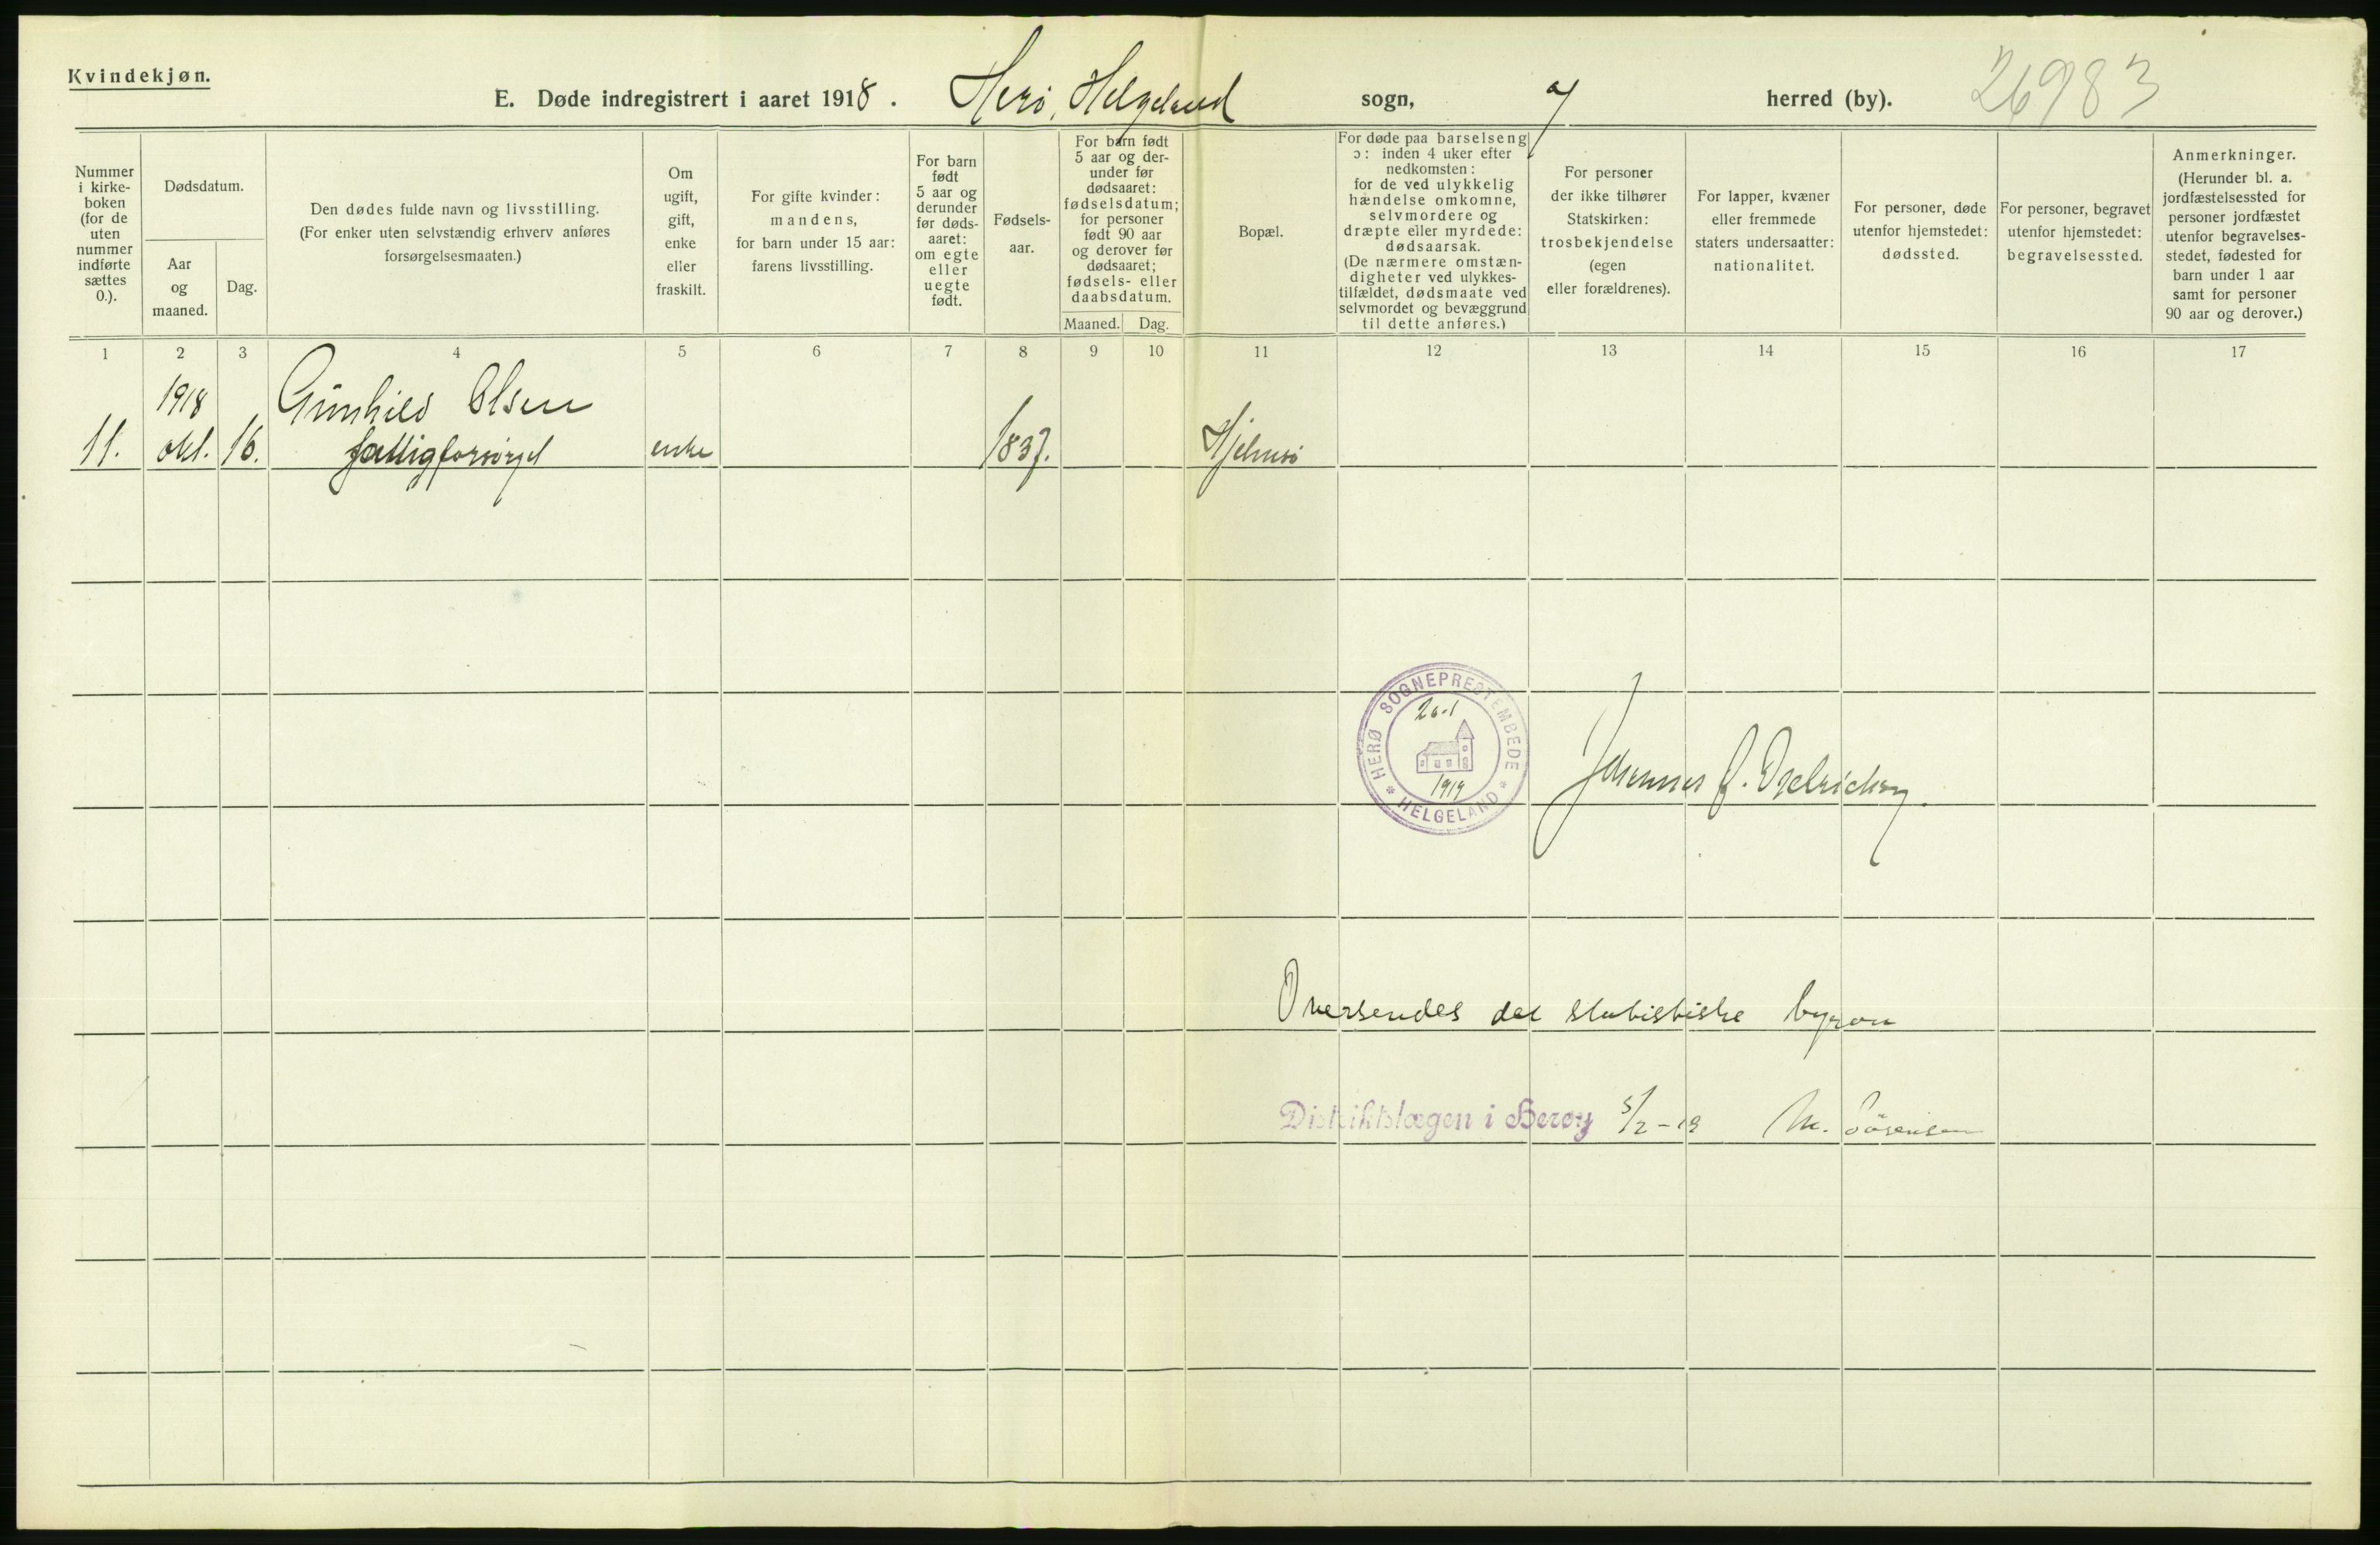 Kvindekjøn.
E. Døde indregistrert i aaret 1918. Herö, Helgeland sogn, herred (by). 26983
Nummer
i kirke-
boken
(for de
uten
nummer
indførte
sættes
0.).
Dødsdatum.
Aar
og
maaned.
Dag.
Den dødes fulde navn og livsstilling.
(For enker uten selvstændig erhverv anføres
forsørgelsesmaaten.)
Om
ugift,
gift,
enke
eller
fraskilt.
For gifte kvinder:
mandens,
for barn under 15 aar:
farens livsstilling.
For barn
født
5 aar og
derunder
før døds-
aaret:
om egte
eller
uegte
født.
Fødsels-
aar.
For barn født
5 aar og der-
under før
dødsaaret:
fødselsdatum;
for personer
født 90 aar
og derover før
dødsaaret;
fødsels- eller
daabsdatum.
Maaned. Dag.
Bopæl.
For døde paa barselseng
ɔ: inden 4 uker efter
nedkomsten:
for de ved ulykkelig
hændelse omkomne,
selvmordere og
dræpte eller myrdede:
dødsaarsak.
(De nærmere omstæn-
digheter ved ulykkes-
tilfældet, dødsmaate ved
selvmordet og bevæggrund
til dette anføres.)
For personer
der ikke tilhører
Statskirken:
trosbekjendelse
(egen
eller forældrenes).
For lapper, kvæner
eller fremmede
staters undersaatter:
nationalitet.
For personer, døde
utenfor hjemstedet:
dødssted.
For personer, begravet
utenfor hjemstedet:
begravelsessted.
Anmerkninger.
(Herunder bl. a.
jordfæstelsessted for
personer jordfæstet
utenfor begravelses-
stedet, fødested for
barn under 1 aar
samt for personer
90 aar og derover.)
1 2 3 4 5 6 7 8 9 10 11 12 13 14 15 16 17
1918 Gunhild Olsen
11. okt. 16. fattigforsörget enke 1837. Hjelmsö
HERØ SOGNEPRESTEMBEDE
* HELGELAND *
20-1
1919
Johannes
Oversendes det statistiske byraa
Distriktslægen i Herøy 5/2-19 M. Sörensen